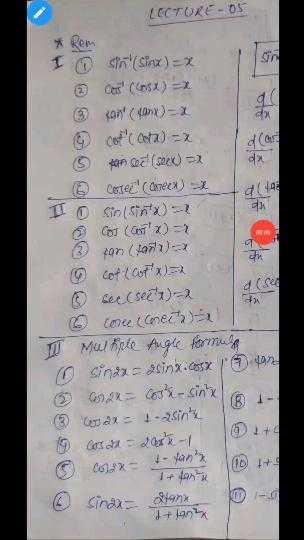 LECTURE - 05
* Rem
I ① sin⁻¹(sinx) = x
② cos⁻¹(cosx) = x
③ tan⁻¹(tanx) = x
④ cot⁻¹(cotx) = x
⑤ sec⁻¹(secx) = x
⑥ cosec⁻¹(cosecx) = x
II ① sin(sin⁻¹x) = x
② cos(cos⁻¹x) = x
③ tan(tan⁻¹x) = x
④ cot(cot⁻¹x) = x
⑤ sec(sec⁻¹x) = x
⑥ cosec(cosec⁻¹x) = x
III Multiple Angle formula
① sin2x = 2sinx.cosx
② cos2x = cos²x - sin²x
③ cos2x = 1 - 2sin²x
④ cos2x = 2cos²x - 1
⑤ cos2x = 1 - tan²x / 1 + tan²x
⑥ sin2x = 2tanx / 1 + tan²x
sin
d( / dx
d(cos / dx
d(tan / dx
d / dx
d(sec / dx
⑦ tan
⑧ 1 -
⑨ 1 + c
⑩ 1 +
⑪ 1 -